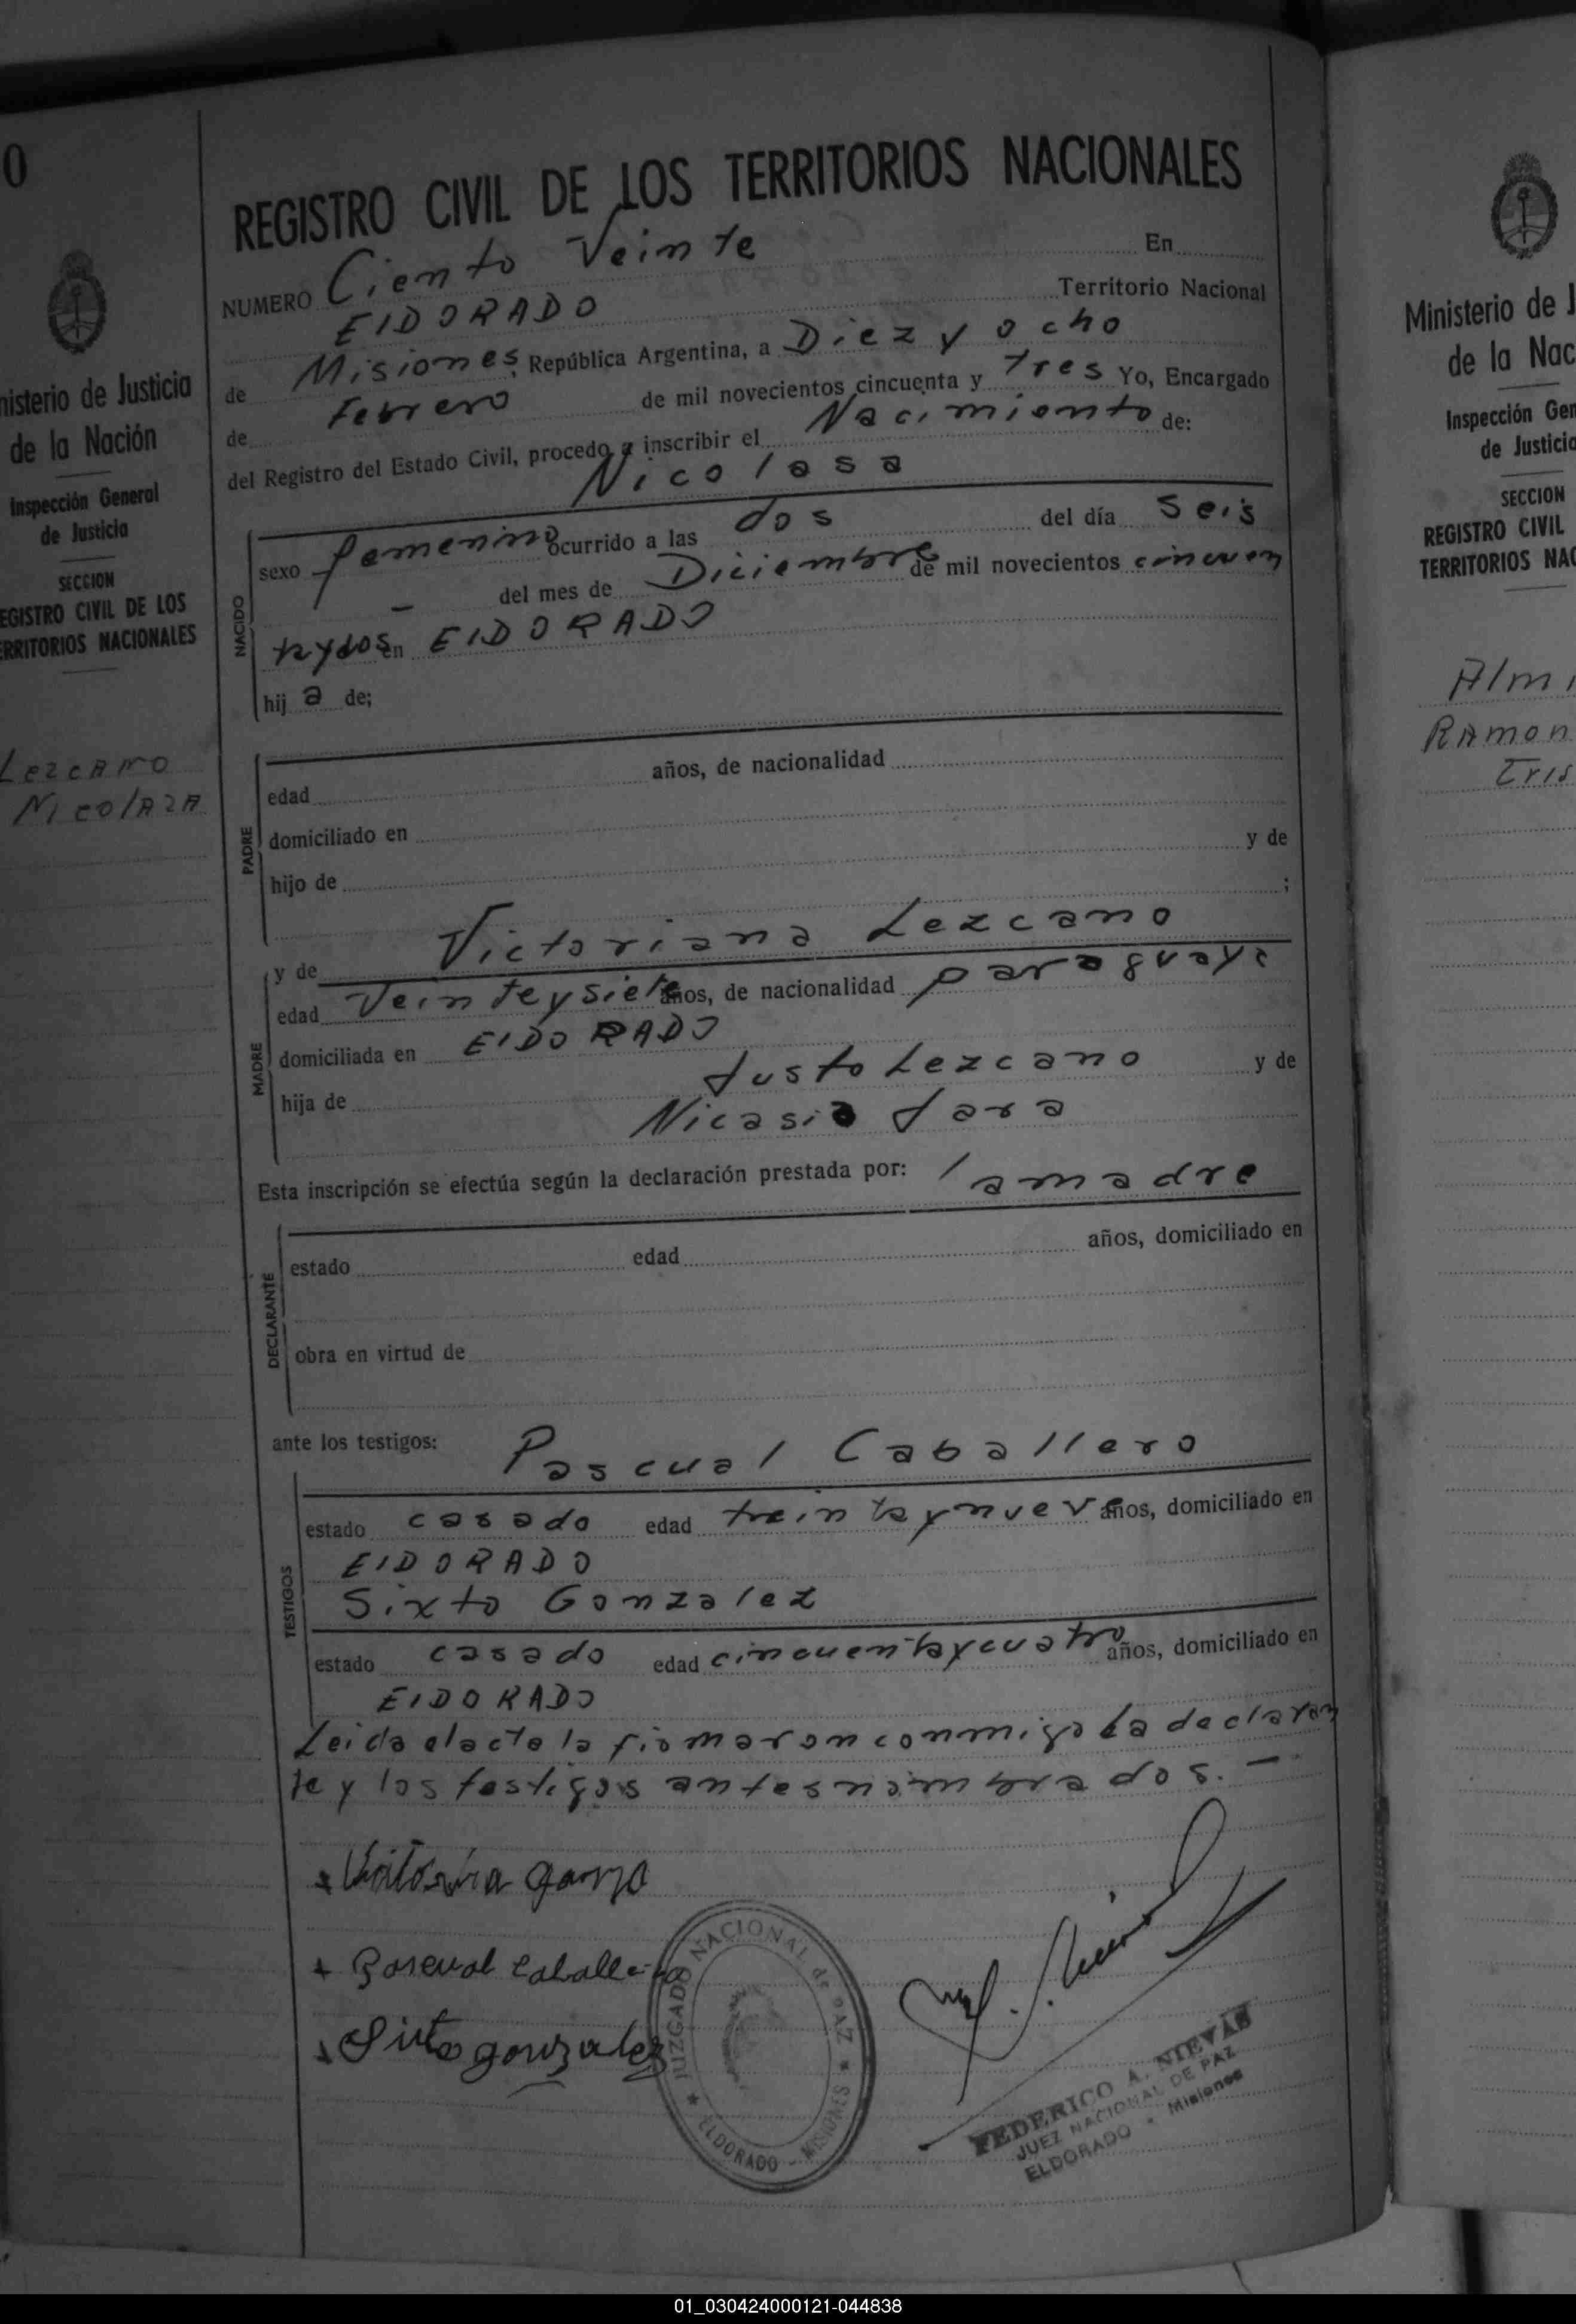 0
Ministerio de Justicia
de la Nación
Inspección General
de Justicia
SECCION
REGISTRO CIVIL DE LOS
TERRITORIOS NACIONALES
Lezcano
Nicolaza
REGISTRO CIVIL DE LOS TERRITORIOS NACIONALES
NUMERO Ciento Veinte En
ElDORADO Territorio Nacional
de Misiones, República Argentina, a Diez y ocho
de Febrero de mil novecientos cincuenta y tres Yo, Encargado
del Registro del Estado Civil, procedo a inscribir el Nacimiento de:
Nicolasa
NACIDO
sexo femenino ocurrido a las dos del día seis
— del mes de Diciembre de mil novecientos cincuen
taydos en ElDORADO
hij a de;
PADRE
edad años, de nacionalidad
domiciliado en
hijo de y de
;
y de Victoriana Lezcano
MADRE
edad Veinteysiete años, de nacionalidad paraguaya
domiciliada en ElDORADO
hija de Justo Lezcano y de
Nicasia Jara
Esta inscripción se efectúa según la declaración prestada por: la madre
DECLARANTE
estado edad años, domiciliado en
obra en virtud de
ante los testigos: Pascual Caballero
TESTIGOS
estado casado edad treintaynueve años, domiciliado en
ElDORADO
Sixto Gonzalez
estado casado edad cincuentaycuatro años, domiciliado en
ElDORADO
Leida elacta la firmaron conmigo La declaran
te y los testigos antes nombrados. —
+ Pascual Caballero
+ Sixto gonzalez
JUZGADO NACIONAL de PAZ
ELDORADO - MISIONES
FEDERICO A. NIEVAS
JUEZ NACIONAL DE PAZ
ELDORADO - Misiones
Ministerio de J
de la Nac
Inspección Gen
de Justicia
SECCION
REGISTRO CIVIL
TERRITORIOS NAC
Almi
Ramon
Cris
01_030424000121-044838